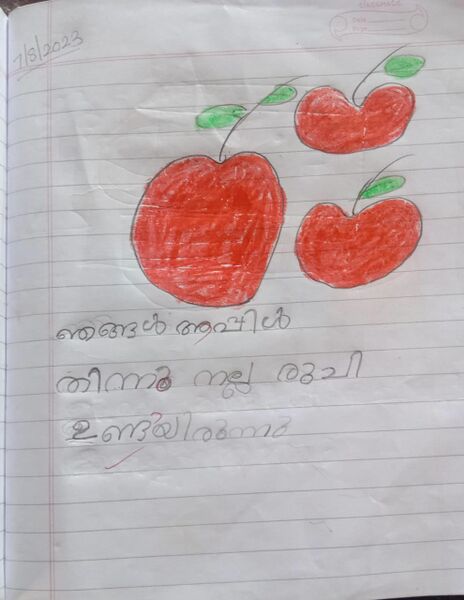 7/8/2023
classmate
Date
Page
ഞങ്ങൾ ആപ്പിൾ
തിന്നു നല്ല രുചി
ഉണ്ടായിരുന്നു